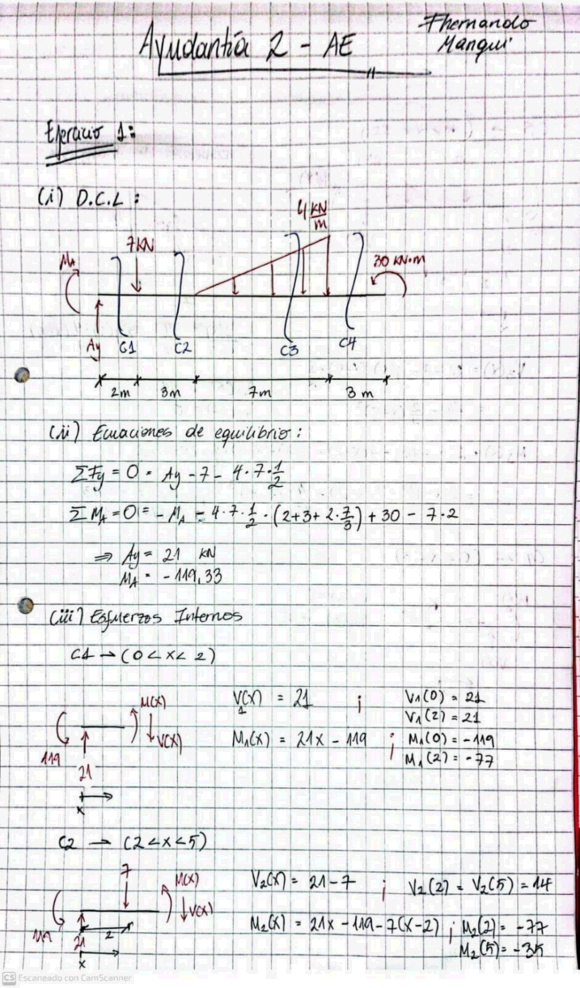 Fhernando
Manqui
Ayudantía 2 - AE
Ejercicio 1:
(i) D.C.L :
4 kN/m
7kN
MA
30 kN·m
Ay
C1
C2
C3
C4
2m
3m
7m
3m
(ii) Ecuaciones de equilibrio:
ΣFy = 0 = Ay - 7 - 4·7·1/2
ΣMA = 0 = -MA - 4·7·1/2·(2+3+2·7/3) + 30 - 7·2
⇒ Ay = 21 kN
MA = -119,33
(iii) Esfuerzos Internos
C1 → (0<x<2)
M(x)
V(x)
119
21
x
V1(x) = 21 ;
V1(0) = 21
V1(2) = 21
M1(x) = 21x - 119 ;
M1(0) = -119
M1(2) = -77
C2 → (2<x<5)
7
M(x)
V(x)
119
21
2
x
V2(x) = 21-7 ; V2(2) = V2(5) = 14
M2(x) = 21x - 119 - 7(x-2) ; M2(2) = -77
M2(5) = -35
CS Escaneado con CamScanner